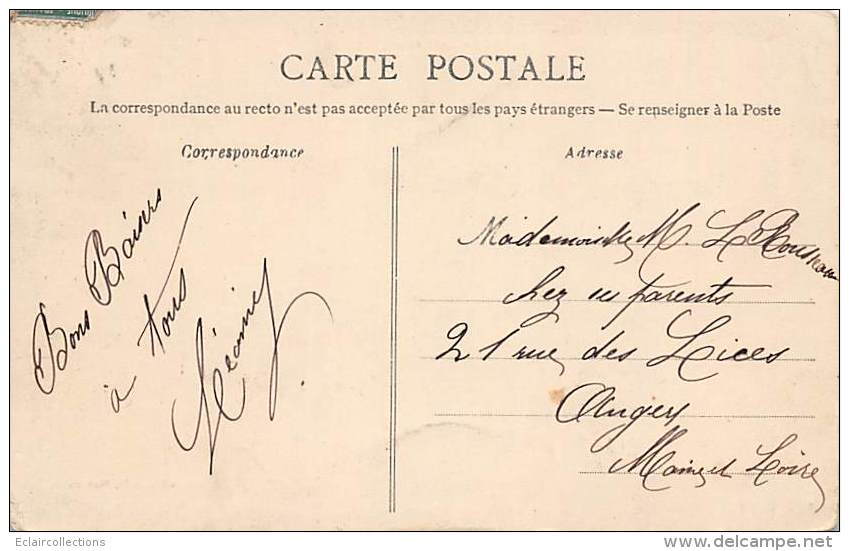 CARTE POSTALE
La correspondance au recto n'est pas acceptée par tous les pays étrangers — Se renseigner à la Poste
Correspondance
Adresse
Bons Baisers
à tous
Mademoiselle M. L. Rousseau
chez ses parents
21 rue des Lices
Angers
Maine et Loire
Eclaircollections
www.delcampe.net